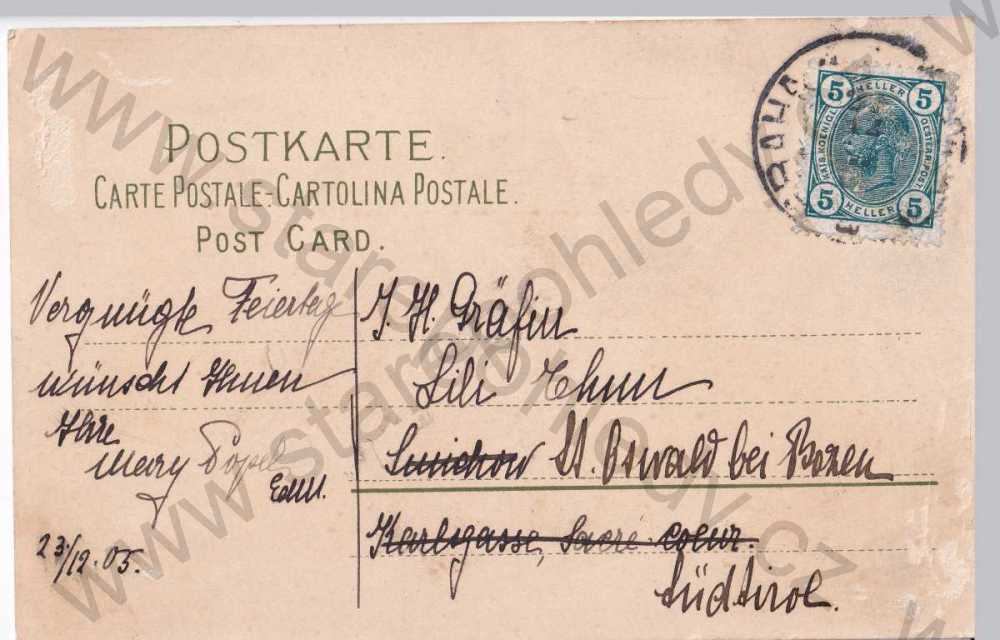 POSTKARTE.
CARTE POSTALE-CARTOLINA POSTALE.
POST CARD.
5 HELLER 5
KAIS. KOENIGL. OESTERR. POST
5 HELLER 5
Vergnügte Feiertag
wünscht Ihnen
Ihre
Mary
23/12.05.
I. H. Gräfin
Lili Thun
Smichow St. Oswald bei Bozen
Karlsgasse, Sacré coeur.
Südtirol.
www.starepohledy.cz
www.starepohledy.cz